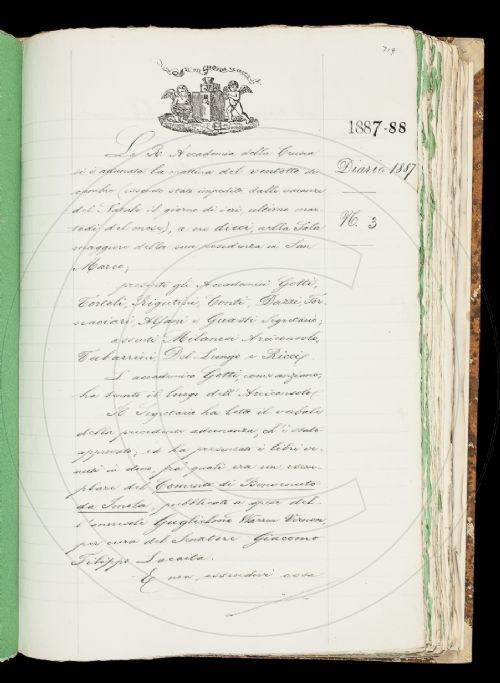 719
1887-88
Diario 1887
N. 3
La R. Accademia della Crusca
si è adunata la mattina del ventotto di-
cembre (essendo stato impedito dalle vacanze
del Natale il giorno di ieri, ultimo mar-
tedì del mese), a ore dieci, nella Sala
maggiore della sua residenza in San
Marco;
presenti gli Accademici Gotti,
Tortoli, Rigutini, Conti, Dazzi, For-
naciari, Alfani e Guasti Segretario;
assenti Milanesi Arciconsolo,
Tabarrini, Del Lungo e Ricci.
L'accademico Gotti, come anziano,
ha tenuto il luogo dell'Arciconsolo.
Il Segretario ha letto il verbale
della precedente adunanza, ch'è stato
approvato; ed ha presentato i libri ve-
nuti in dono, fra' quali era un esem-
plare del Comento di Benvenuto
da Imola, pubblicato a spese del-
l'onorevole Guglielmo Warren Vernon,
per cura del Senatore Giacomo
Filippo Lacaita.
E non essendovi cosa